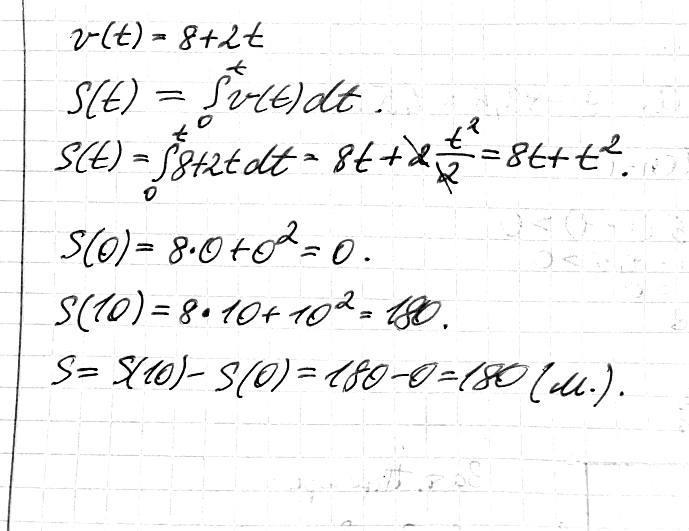 v(t) = 8+2t
S(t) = ∫₀ᵗ v(t)dt.
S(t) = ∫₀ᵗ 8+2t dt = 8t + 2 t²/2 = 8t + t².
S(0) = 8·0+0² = 0.
S(10) = 8·10+10² = 180.
S = S(10) - S(0) = 180-0 = 180 (м.).